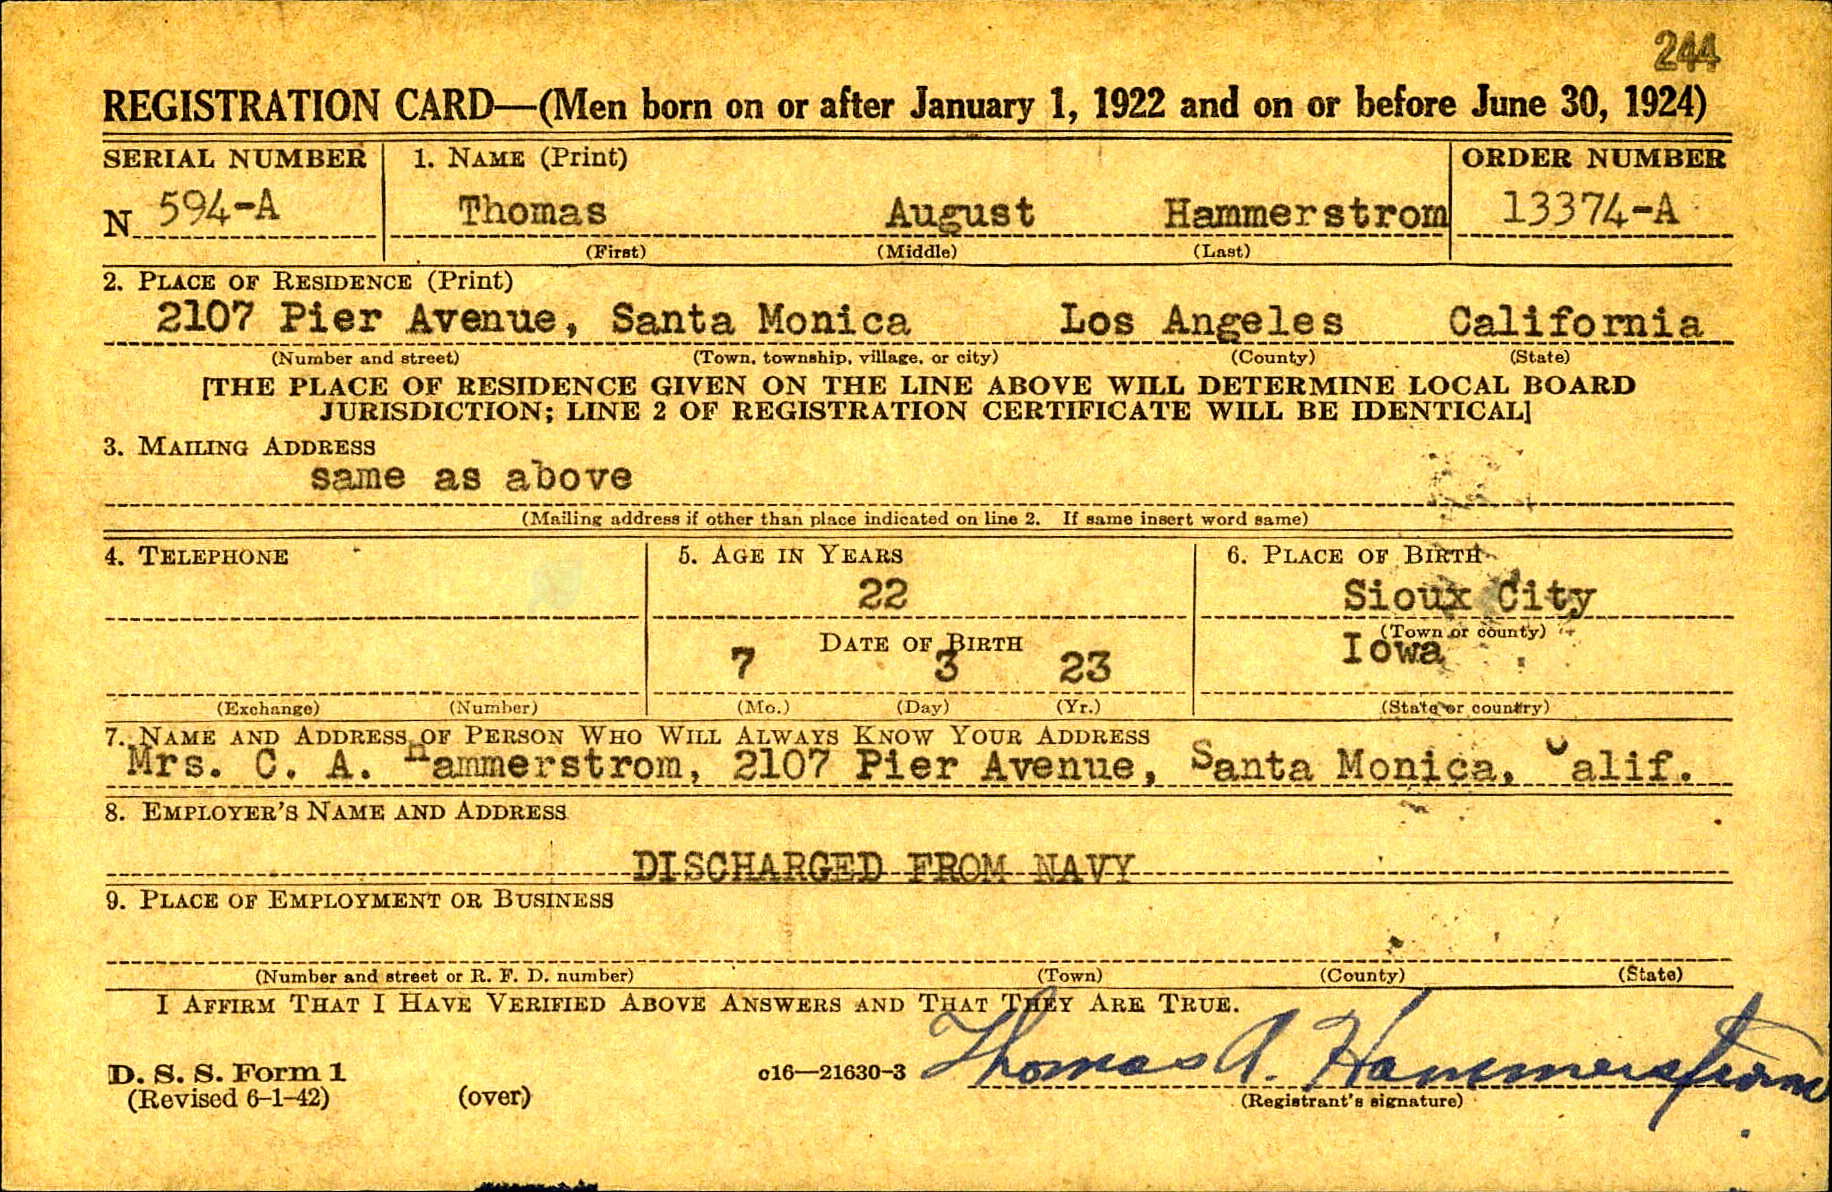 244
REGISTRATION CARD—(Men born on or after January 1, 1922 and on or before June 30, 1924)
SERIAL NUMBER 1. NAME (Print) ORDER NUMBER
N 594-A Thomas August Hammerstrom 13374-A
(First) (Middle) (Last)
2. PLACE OF RESIDENCE (Print)
2107 Pier Avenue, Santa Monica Los Angeles California
(Number and street) (Town, township, village, or city) (County) (State)
[THE PLACE OF RESIDENCE GIVEN ON THE LINE ABOVE WILL DETERMINE LOCAL BOARD
JURISDICTION; LINE 2 OF REGISTRATION CERTIFICATE WILL BE IDENTICAL]
3. MAILING ADDRESS
same as above
(Mailing address if other than place indicated on line 2. If same insert word same)
4. TELEPHONE 5. AGE IN YEARS 6. PLACE OF BIRTH
22 Sioux City
DATE OF BIRTH (Town or county)
7 3 23 Iowa
(Exchange) (Number) (Mo.) (Day) (Yr.) (State or country)
7. NAME AND ADDRESS OF PERSON WHO WILL ALWAYS KNOW YOUR ADDRESS
Mrs. C. A. Hammerstrom, 2107 Pier Avenue, Santa Monica, Calif.
8. EMPLOYER'S NAME AND ADDRESS
DISCHARGED FROM NAVY
9. PLACE OF EMPLOYMENT OR BUSINESS
(Number and street or R. F. D. number) (Town) (County) (State)
I AFFIRM THAT I HAVE VERIFIED ABOVE ANSWERS AND THAT THEY ARE TRUE.
D. S. S. Form 1 c16—21630-3 Thomas A. Hammerstrom
(Revised 6-1-42) (over) (Registrant's signature)